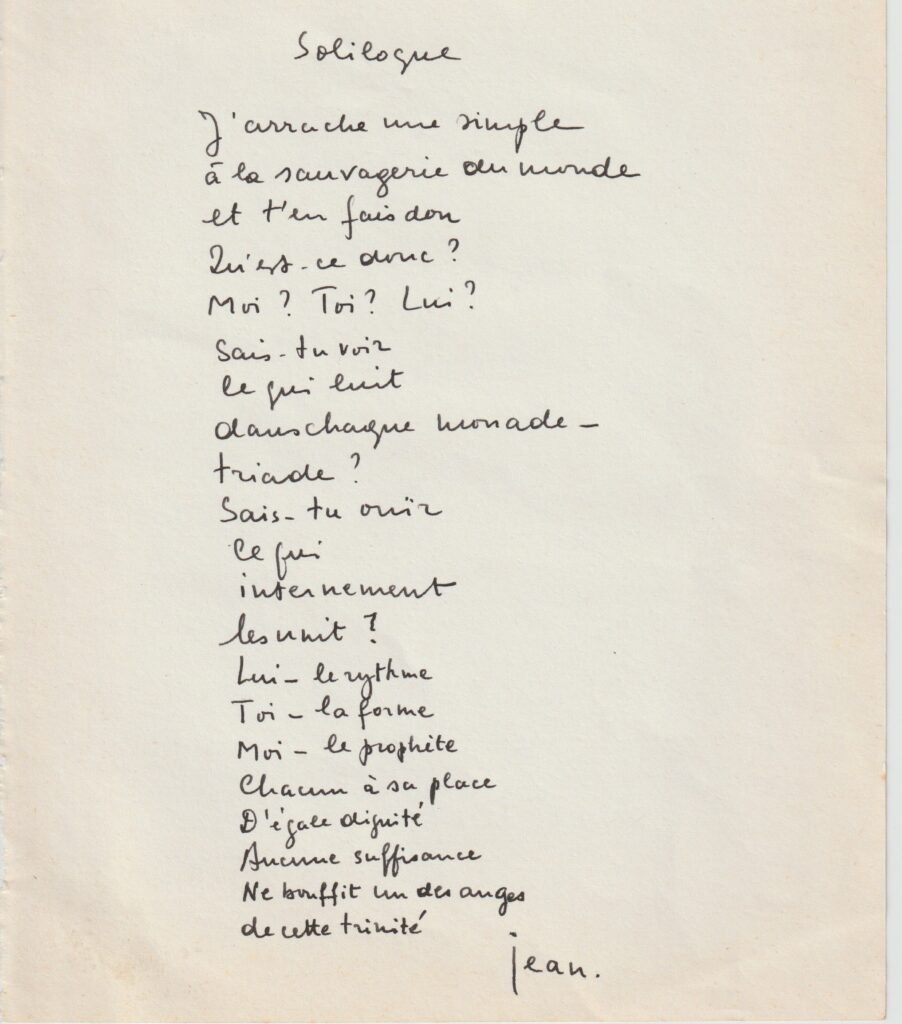 Soliloque
J'arrache une simple
à la sauvagerie du monde
et t'en fais don
Qu'est-ce donc ?
Moi ? Toi ? Lui ?
Sais-tu voir
ce qui luit
dans chaque monade-
triade ?
Sais-tu ouïr
Ce qui
internement
les unit ?
Lui - le rythme
Toi - la forme
Moi - le prophète
Chacun à sa place
D'égale dignité
Aucune suffisance
Ne bouffit un des anges
de cette trinité
jean.